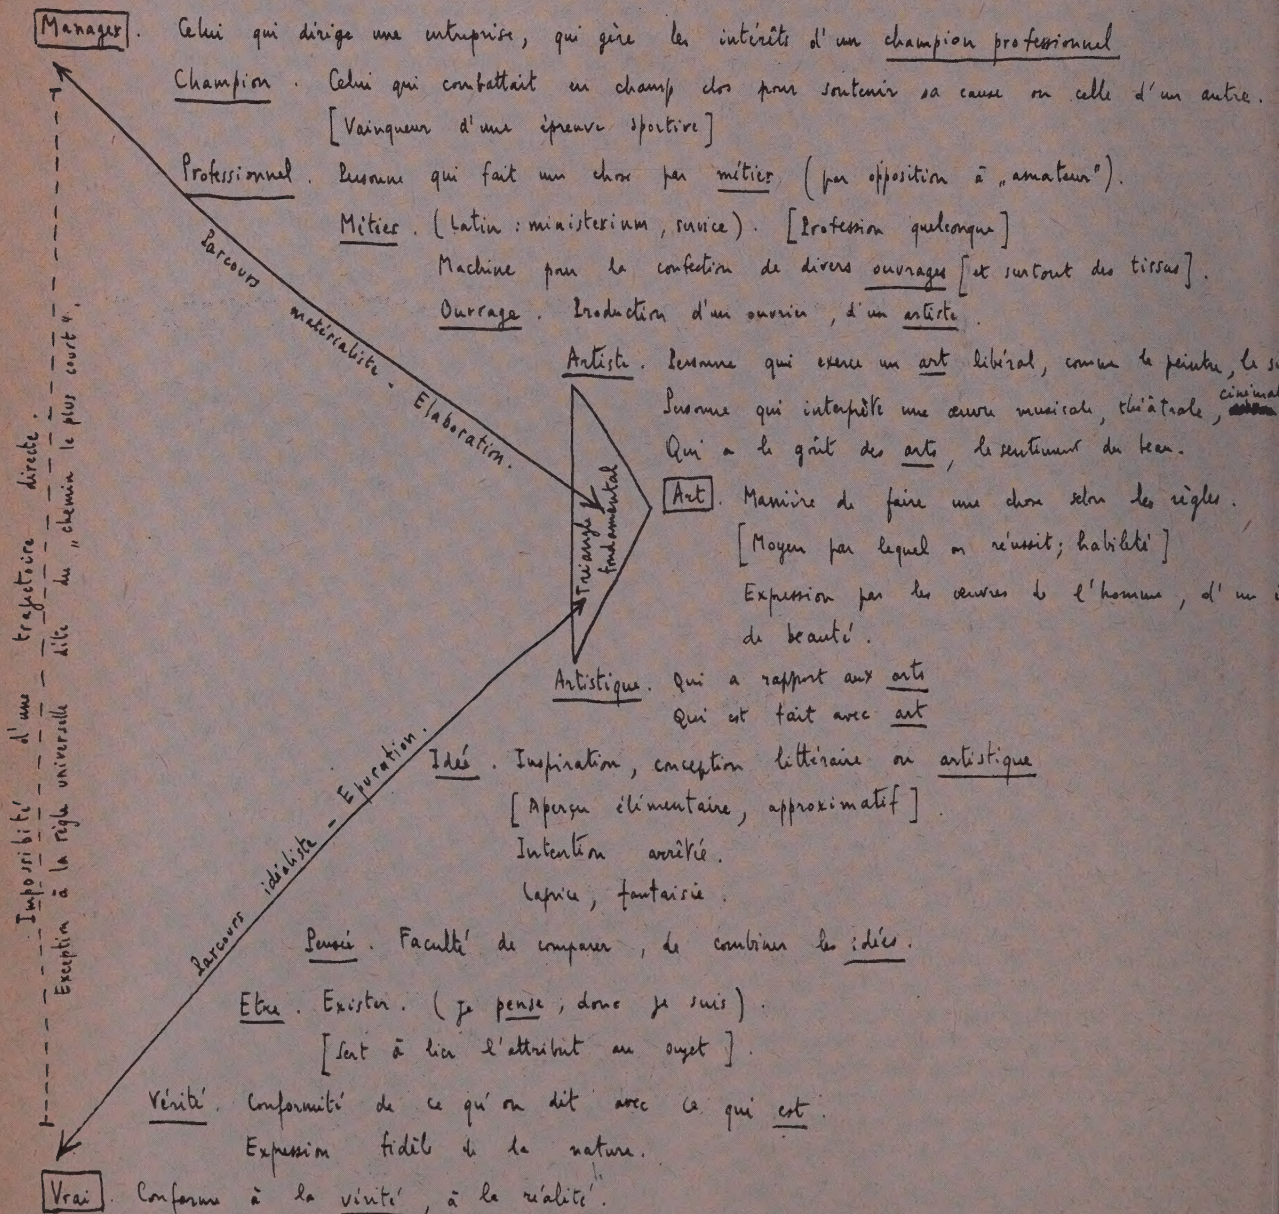 Manager. Celui qui dirige une entreprise, qui gère les intérêts d'un champion professionnel
Champion. Celui qui combattait en champ clos pour soutenir sa cause ou celle d'un autre.
[Vainqueur d'une épreuve sportive]
Professionnel. Personne qui fait une chose par métier (par opposition à „amateur").
Métier. (Latin : ministerium, service). [Profession quelconque]
Machine pour la confection de divers ouvrages [et surtout des tissus].
Ouvrage. Production d'un ouvrier, d'un artiste.
Artiste. Personne qui exerce un art libéral, comme le peintre, le
Personne qui interprète une œuvre musicale, théâtrale,
Qui a le goût des arts, le sentiment du beau.
Art. Manière de faire une chose selon les règles.
[Moyen par lequel on réussit; habileté]
Expression par les œuvres de l'homme, d'un
de beauté.
Artistique. Qui a rapport aux arts
Qui est fait avec art
Idée. Inspiration, conception littéraire ou artistique
[Aperçu élémentaire, approximatif].
Intention arrêtée.
Caprice, fantaisie.
Pensée. Faculté de comparer, de combiner les idées.
Etre. Exister. (je pense, donc je suis).
[Sert à lier l'attribut au sujet].
Vérité. Conformité de ce qu'on dit avec ce qui est.
Expression fidèle de la nature.
Vrai. Conforme à la vérité, à la réalité.
Parcours matérialiste - Elaboration.
Triangle fondamental
Parcours idéaliste - Epuration.
Impossibilité d'une trajectoire directe.
Exception à la règle universelle dite du „chemin le plus court".